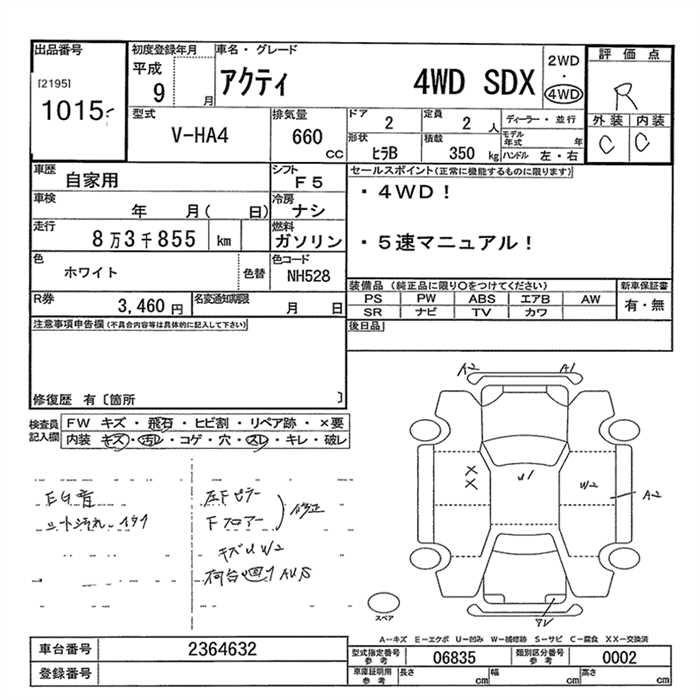 出品番号
[2195]
1015
初度登録年月
平成
9 月
車名・グレード
アクティ 4WD SDX
2WD
・
4WD
評価点
R
外装 内装
C C
型式
V-HA4
排気量
660
CC
ドア
2
定員
2 人
形状
ヒラB
積載
350 kg
ディーラー・並行
モデル年式 年
ハンドル 左・右
車歴
自家用
シフト
F5
車検
年 月( 日)
冷房
ナシ
走行
8万3千855 km
燃料
ガソリン
色
ホワイト
色替
色コード
NH528
R券
3,460 円
名変通知期限
月 日
セールスポイント(正常に機能するものに限ります)
・4WD!
・5速マニュアル!
装備品(純正品に限り○をつけてください)
PS PW ABS エアB AW
SR ナビ TV カワ
新車保証書
有・無
後日品
注意事項申告欄(不具合内容等は具体的に記入して下さい)
修復歴 有〔箇所 〕
検査員記入欄
FW キズ・飛石・ヒビ割・リペア跡・×要
内装 キズ・汚レ・コゲ・穴・スレ・キレ・破レ
EG音
シート汚れ
左Fピラー
Fフロアー
修正
キズU W2
荷台
A2 A1
XX
U1
W2
A2
スペア
A-キズ E-エクボ U-凹み W-補修跡 S-サビ C-腐食 XX-交換済
車台番号
2364632
登録番号
型式指定番号
参考
06835
類別区分番号
参考
0002
車庫証明用
参考
長さ cm
幅 cm
高さ cm